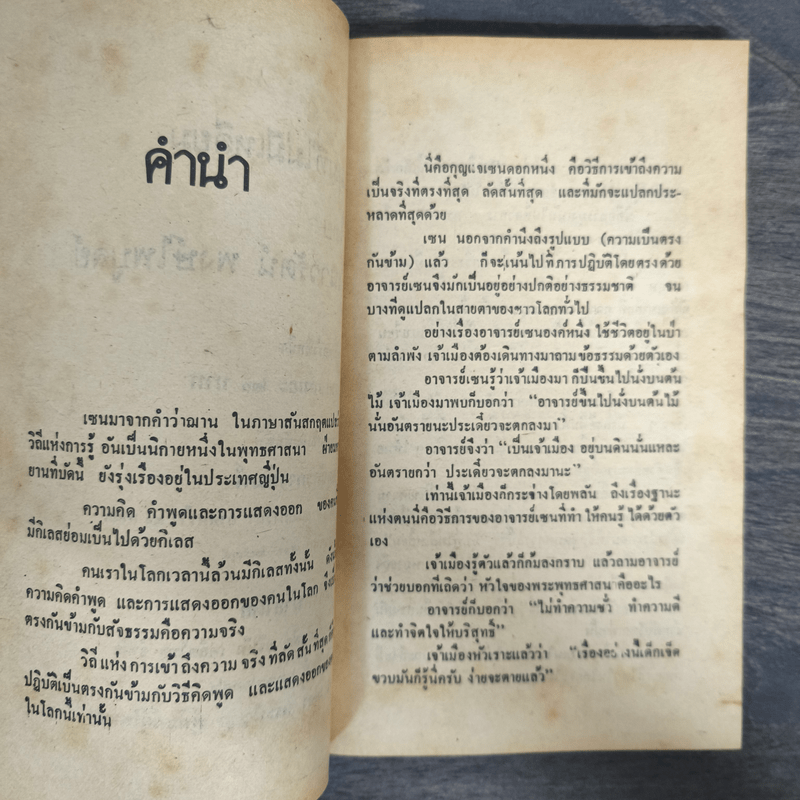 คำนำ
เซนมาจากคำว่าฌาน ในภาษาสันสกฤตแปลว่า
วิถีแห่งการรู้ อันเป็นนิกายหนึ่งในพุทธศาสนา
ยานที่บัดนี้ ยังรุ่งเรืองอยู่ในประเทศญี่ปุ่น
ความคิด คำพูดและการแสดงออก
มีกิเลสย่อมเป็นไปด้วยกิเลส
คนเราในโลกเวลานี้ล้วนมีกิเลสทั้งนั้น
ความคิดคำพูด และการแสดงออกของคนในโลก
ตรงกันข้ามกับสัจธรรมคือความจริง
วิถีแห่งการเข้าถึงความจริงที่ลัดสั้นที่สุด
ปฏิบัติเป็นตรงกันข้ามกับวิธีคิดพูด และแสดงออกของ
ในโลกนี้เท่านั้น
นี่คือกุญแจเซนดอกหนึ่ง คือวิธีการเข้าถึงความ
เป็นจริงที่ตรงที่สุด ลัดสั้นที่สุด และที่มักจะแปลกประ-
หลาดที่สุดด้วย
เซน นอกจากคำนึงถึงรูปแบบ (ความเป็นตรง
กันข้าม) แล้ว ก็จะเน้นไปที่การปฏิบัติโดยตรงด้วย
อาจารย์เซนจึงมักเป็นอยู่อย่างปกติอย่างธรรมชาติ จน
บางทีดูแปลกในสายตาของชาวโลกทั่วไป
อย่างเรื่องอาจารย์เซนองค์หนึ่ง ใช้ชีวิตอยู่ในป่า
ตามลำพัง เจ้าเมืองต้องเดินทางมาถามข้อธรรมด้วยตัวเอง
อาจารย์เซนรู้ว่าเจ้าเมืองมา ก็ปีนขึ้นไปนั่งบนต้น
ไม้ เจ้าเมืองมาพบก็บอกว่า “อาจารย์ขึ้นไปนั่งบนต้นไม้
นั้นอันตรายนะประเดี๋ยวจะตกลงมา”
อาจารย์จึงว่า “เป็นเจ้าเมือง อยู่บนดินนั่นแหละ
อันตรายกว่า ประเดี๋ยวจะตกลงมานะ”
เท่านี้เจ้าเมืองก็กระจ่างโดยพลัน ถึงเรื่องฐานะ
แห่งตนนี่คือวิธีการของอาจารย์เซนที่ทำให้คนรู้ได้ด้วยตัว
เอง
เจ้าเมืองรู้ตัวแล้วก็ก้มลงกราบ แล้วถามอาจารย์
ว่าช่วยบอกทีเถิดว่า หัวใจของพระพุทธศาสน คืออะไร
อาจารย์ก็บอกว่า “ไม่ทำความชั่ว ทำความดี
และทำจิตใจให้บริสุทธิ์”
เจ้าเมืองหัวเราะแล้วว่า “เรื่องอย่างนี้เด็กเจ็ด
ขวบมันก็รู้นี่ครับ ง่ายจะตายแล้ว”